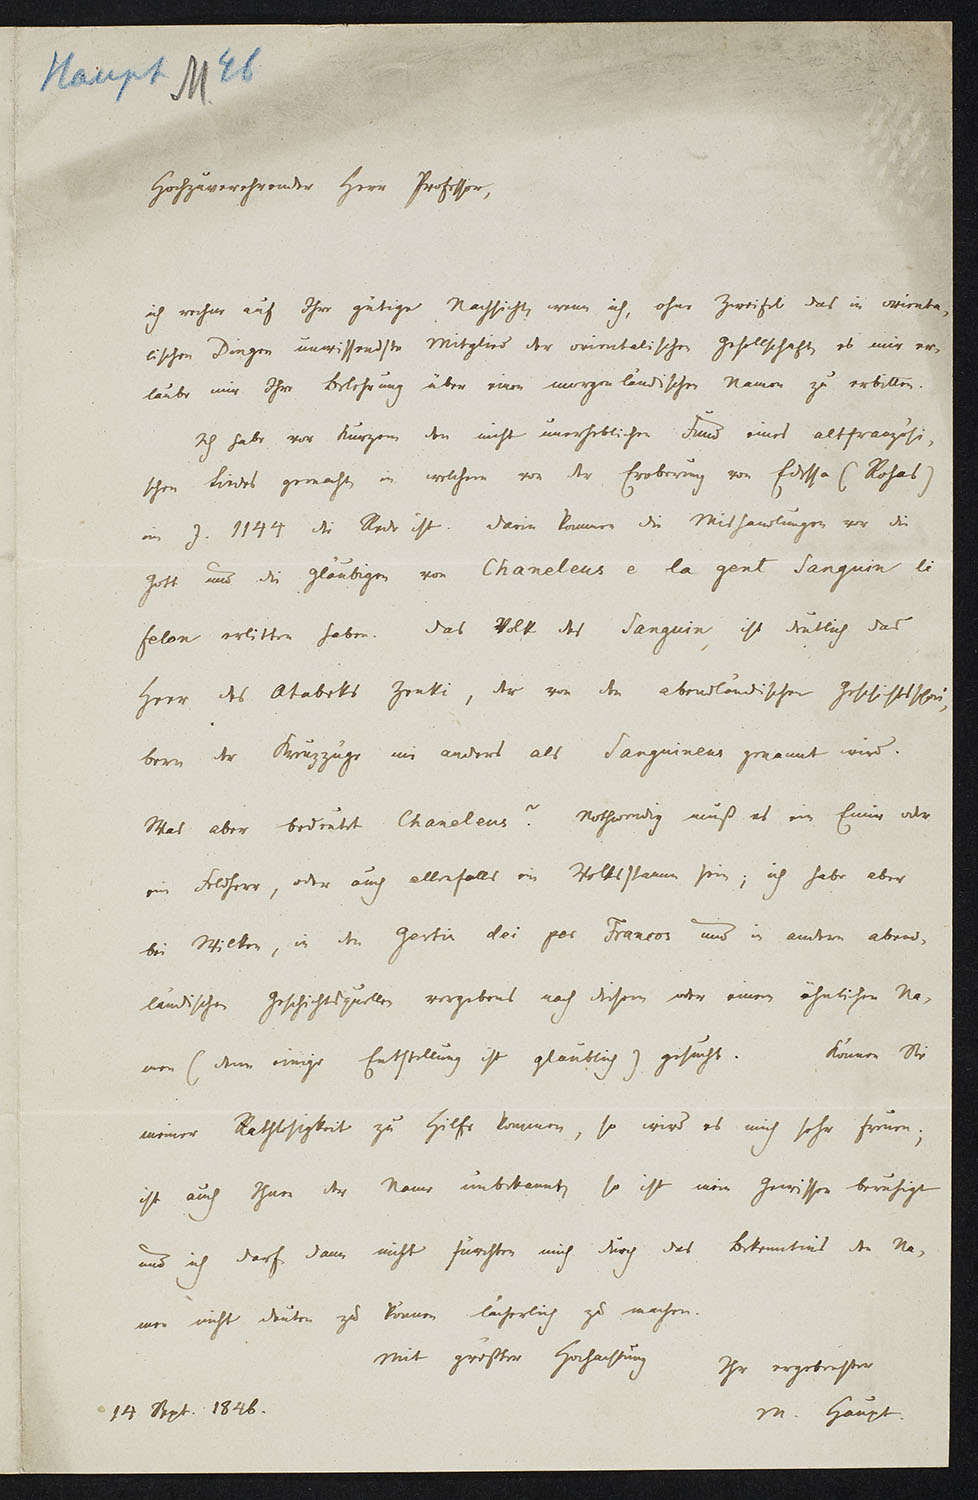 Haupt M 46
Hochzuverehrender Herr Professor,
ich rechne auf Ihre gütige Nachsicht, wenn ich, ohne Zweifel das in orienta-
lischen Dingen unwissendste Mitglied der orientalischen Gesellschaft, es mir er-
laube mir Ihre Belehrung über einen morgenländischen Namen zu erbitten.
Ich habe vor Kurzem den nicht unerheblichen Fund eines altfranzösi-
schen Liedes gemacht, in welchem von der Eroberung von Edessa (Rohas)
im J. 1144 die Rede ist. Darin kommen die Mishandlungen vor die
Gott und die Gläubigen von Chaneleus e la gent Sanguin li
felon erlitten haben. Das Volk des Sanguin, ist deutlich das
Heer des Atabeks Zenki, der von den abendländischen Geschichtsschrei-
bern der Kreuzzüge nie anders als Sanguineus genannt wird.
Was aber bedeutet Chaneleus? Nothwendig muß es ein Emir oder
ein Feldherr, oder auch allenfalls ein Volksstamm sein; ich habe aber
bei Wilken, in den Gestis dei per Francos und in andern abend-
ländischen Geschichtsquellen vergebens nach diesem oder einem ähnlichen Na-
men (denn einige Entstellung ist glaublich) gesucht. Können Sie
meiner Rathlosigkeit zu Hilfe kommen, so wird es mich sehr freuen;
ist auch Ihnen der Name unbekannt, so ist mein Gewissen beruhigt
und ich darf dann nicht fürchten mich durch das Bekenntnis den Na-
men nicht deuten zu können lächerlich zu machen.
Mit größter Hochachtung
Ihr ergebenster
14 Sept. 1846.
M. Haupt.